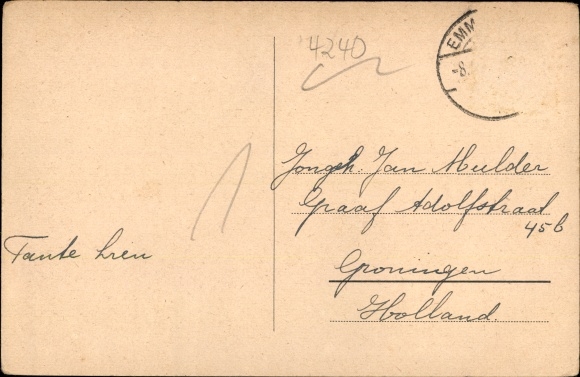 4240
EMM
-8.
Jongh. Jan Mulder
Graaf Adolfstraat
45b
Groningen
Holland.
Tante